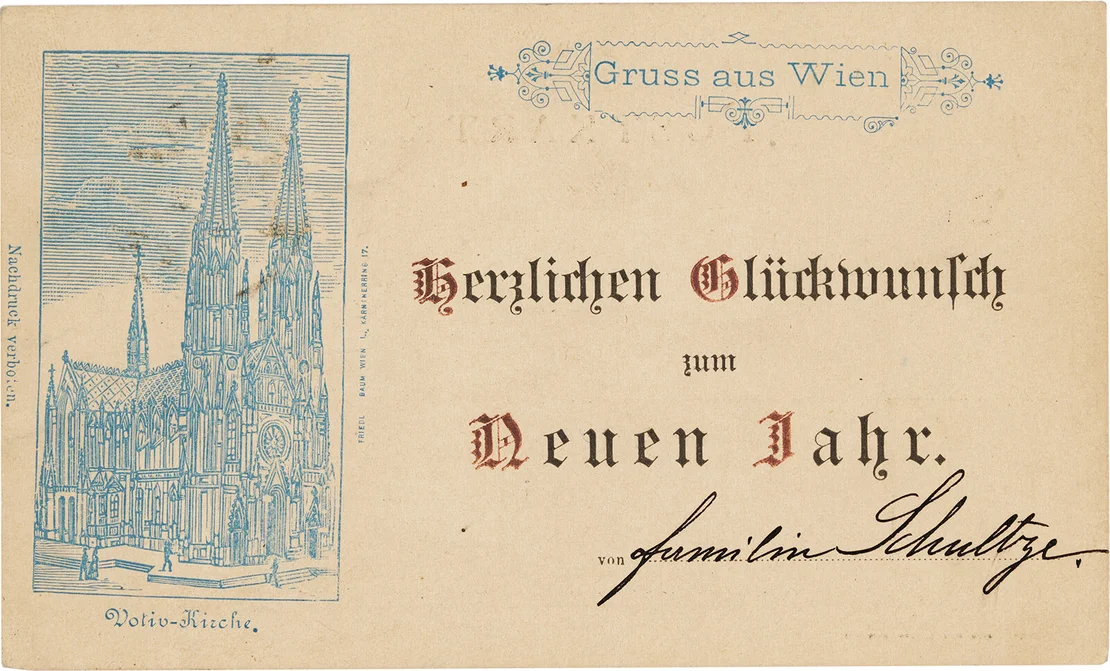 Gruss aus Wien
Herzlichen Glückwunsch
zum
Neuen Jahr.
von familin Schultze.
Votiv-Kirche.
Nachdruck verboten.
FRIEDL BAUM WIEN I., KÄRNTNERRING 17.